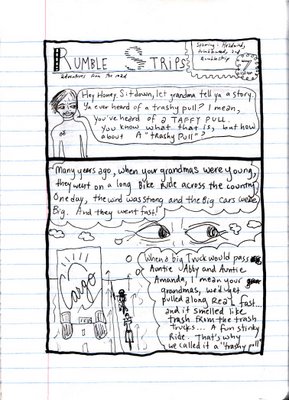 RUMBLE STRIPS
adventures from the road
Starring: Holdswid,
Hey Honey, Sit down, let grandma tell ya a story.
Ya ever heard of a trashy pull? I mean,
you've heard of a TAFFY PULL.
You know what that is, but how
about A "trashy pull"?
Many years ago, when your grandmas were young,
they went on a long Bike Ride across the country
One day, the wind was strong and the Big cars were
Big. And they went fast!
When a big Truck would pass
Auntie Abby and Auntie
Amanda, I mean your
grandmas, we'd get
pulled along Real fast...
and it smelled like
trash from the trash
Trucks... A fun stinky
Ride. That's why
we called it a "trashy pull"
Cargo